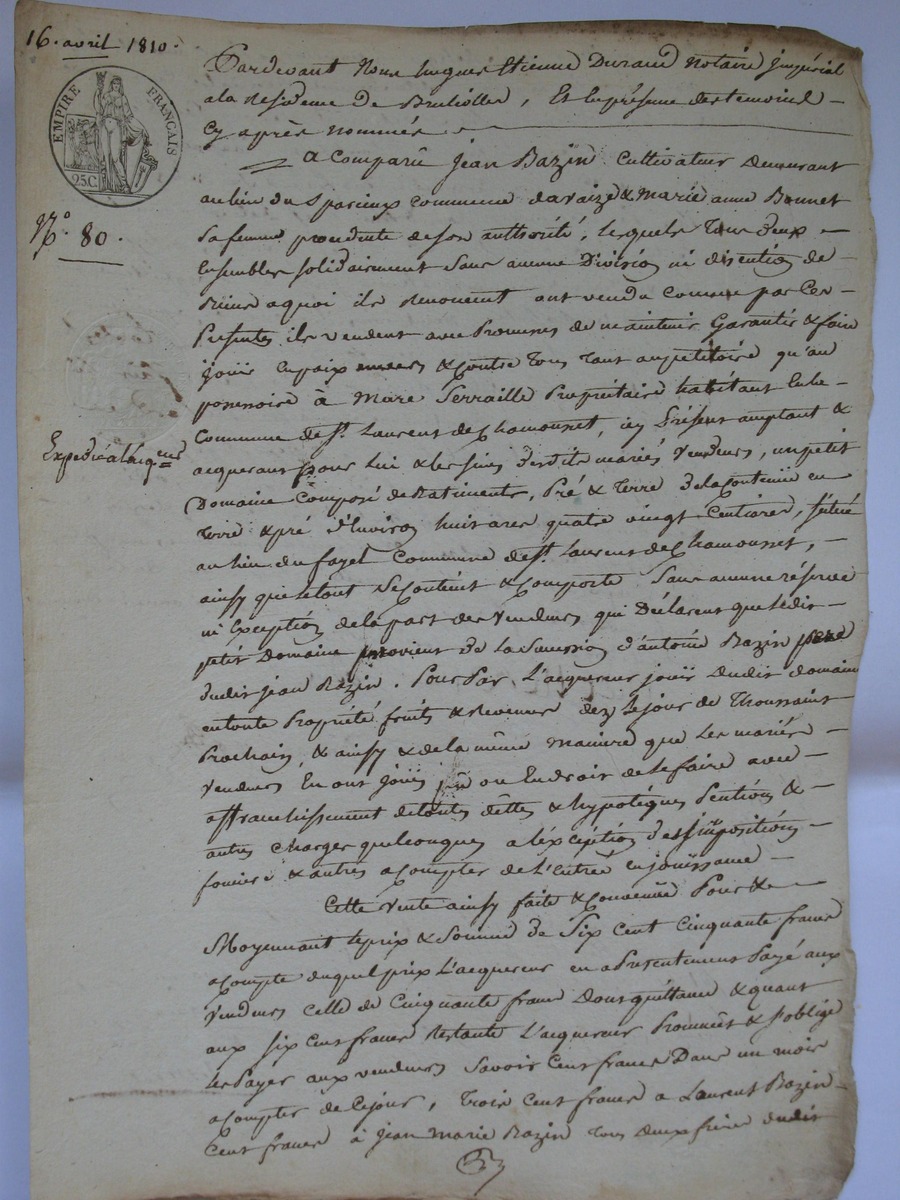 16. avril 1810.
EMPIRE FRANÇAIS
25C.
N.° 80.
Expedié a lacq.eur
Pardevant Nous hugues Etienne Durand Notaire Jmpérial
a la Residence de Bruliolles, Et En présence des temoins
Cy après nommés
a Comparû Jean Bazin Cultivateur Demeurant
au lieu du Sparcieux commune davaize & Marie anne Bonnet
sa femme procedente de son authorité, lesquels tous deux
Ensembles solidairement sans aucune Division ni discution de
Biens a quoi ils Renoncent ont vendu comme par Ces
Presentes ils vendent avec Promesses de maintenir Garantir & faire
jouir en paix envers & Contre tous tant au petitoire qu'au
possessoire à Marc Serraille Propriétaire habitant En la
Commune de St. Laurent de Chamousset, icy Présent acceptant &
acquerant pour lui & les siens desdits mariés Vendeurs, un petit
Domaine Composé de Batiments, Pré & Terre De la Contenüe en
terre & pré d'Environ huit ares quatre vingt Centiares, situé
au lieu du fayel Commune de St. Laurent de Chamousset,
ainsy que le tout se Contient & Comporte Sans aucune réserve
ni Exception de la part des Vendeurs qui Déclarent que ledit
petit Domaine provient de la Succession d'antoine Bazin pere
dudit jean Bazin. Pour Par L'acquereur jouir dudit domaine
en toute Propriété fruits & Revenus dez le jour de Thoussaint
Prochain, & ainsy & de la même maniere que Les mariés
Vendeurs En ont joüi jeü ou En droit de le faire avec
affranchissement de toutes dêttes & hypotéques Pentions &
autres Charges quelconques a l'éxception des jmpositions
fonciere & autres a Compter de L'entrée en joüissance
Cette Vente ainsy faite & Convenüe Pour &
Moyennant le prix & Somme de Six Cent Cinquante francs
a Compte duquel prix L'acquereur en a Presentement Payé aux
Vendeurs Celle de Cinquante francs Dont quittance & quant
aux six Cent francs Restants L'acquereur Promêt & s'oblige
les Payer aux vendeurs Savoir Cent francs Dans un mois
a Compter de Cejour, Trois Cent francs a Laurent Bazin
Cent francs à Jean Marie Bazin tous deux frères dudit